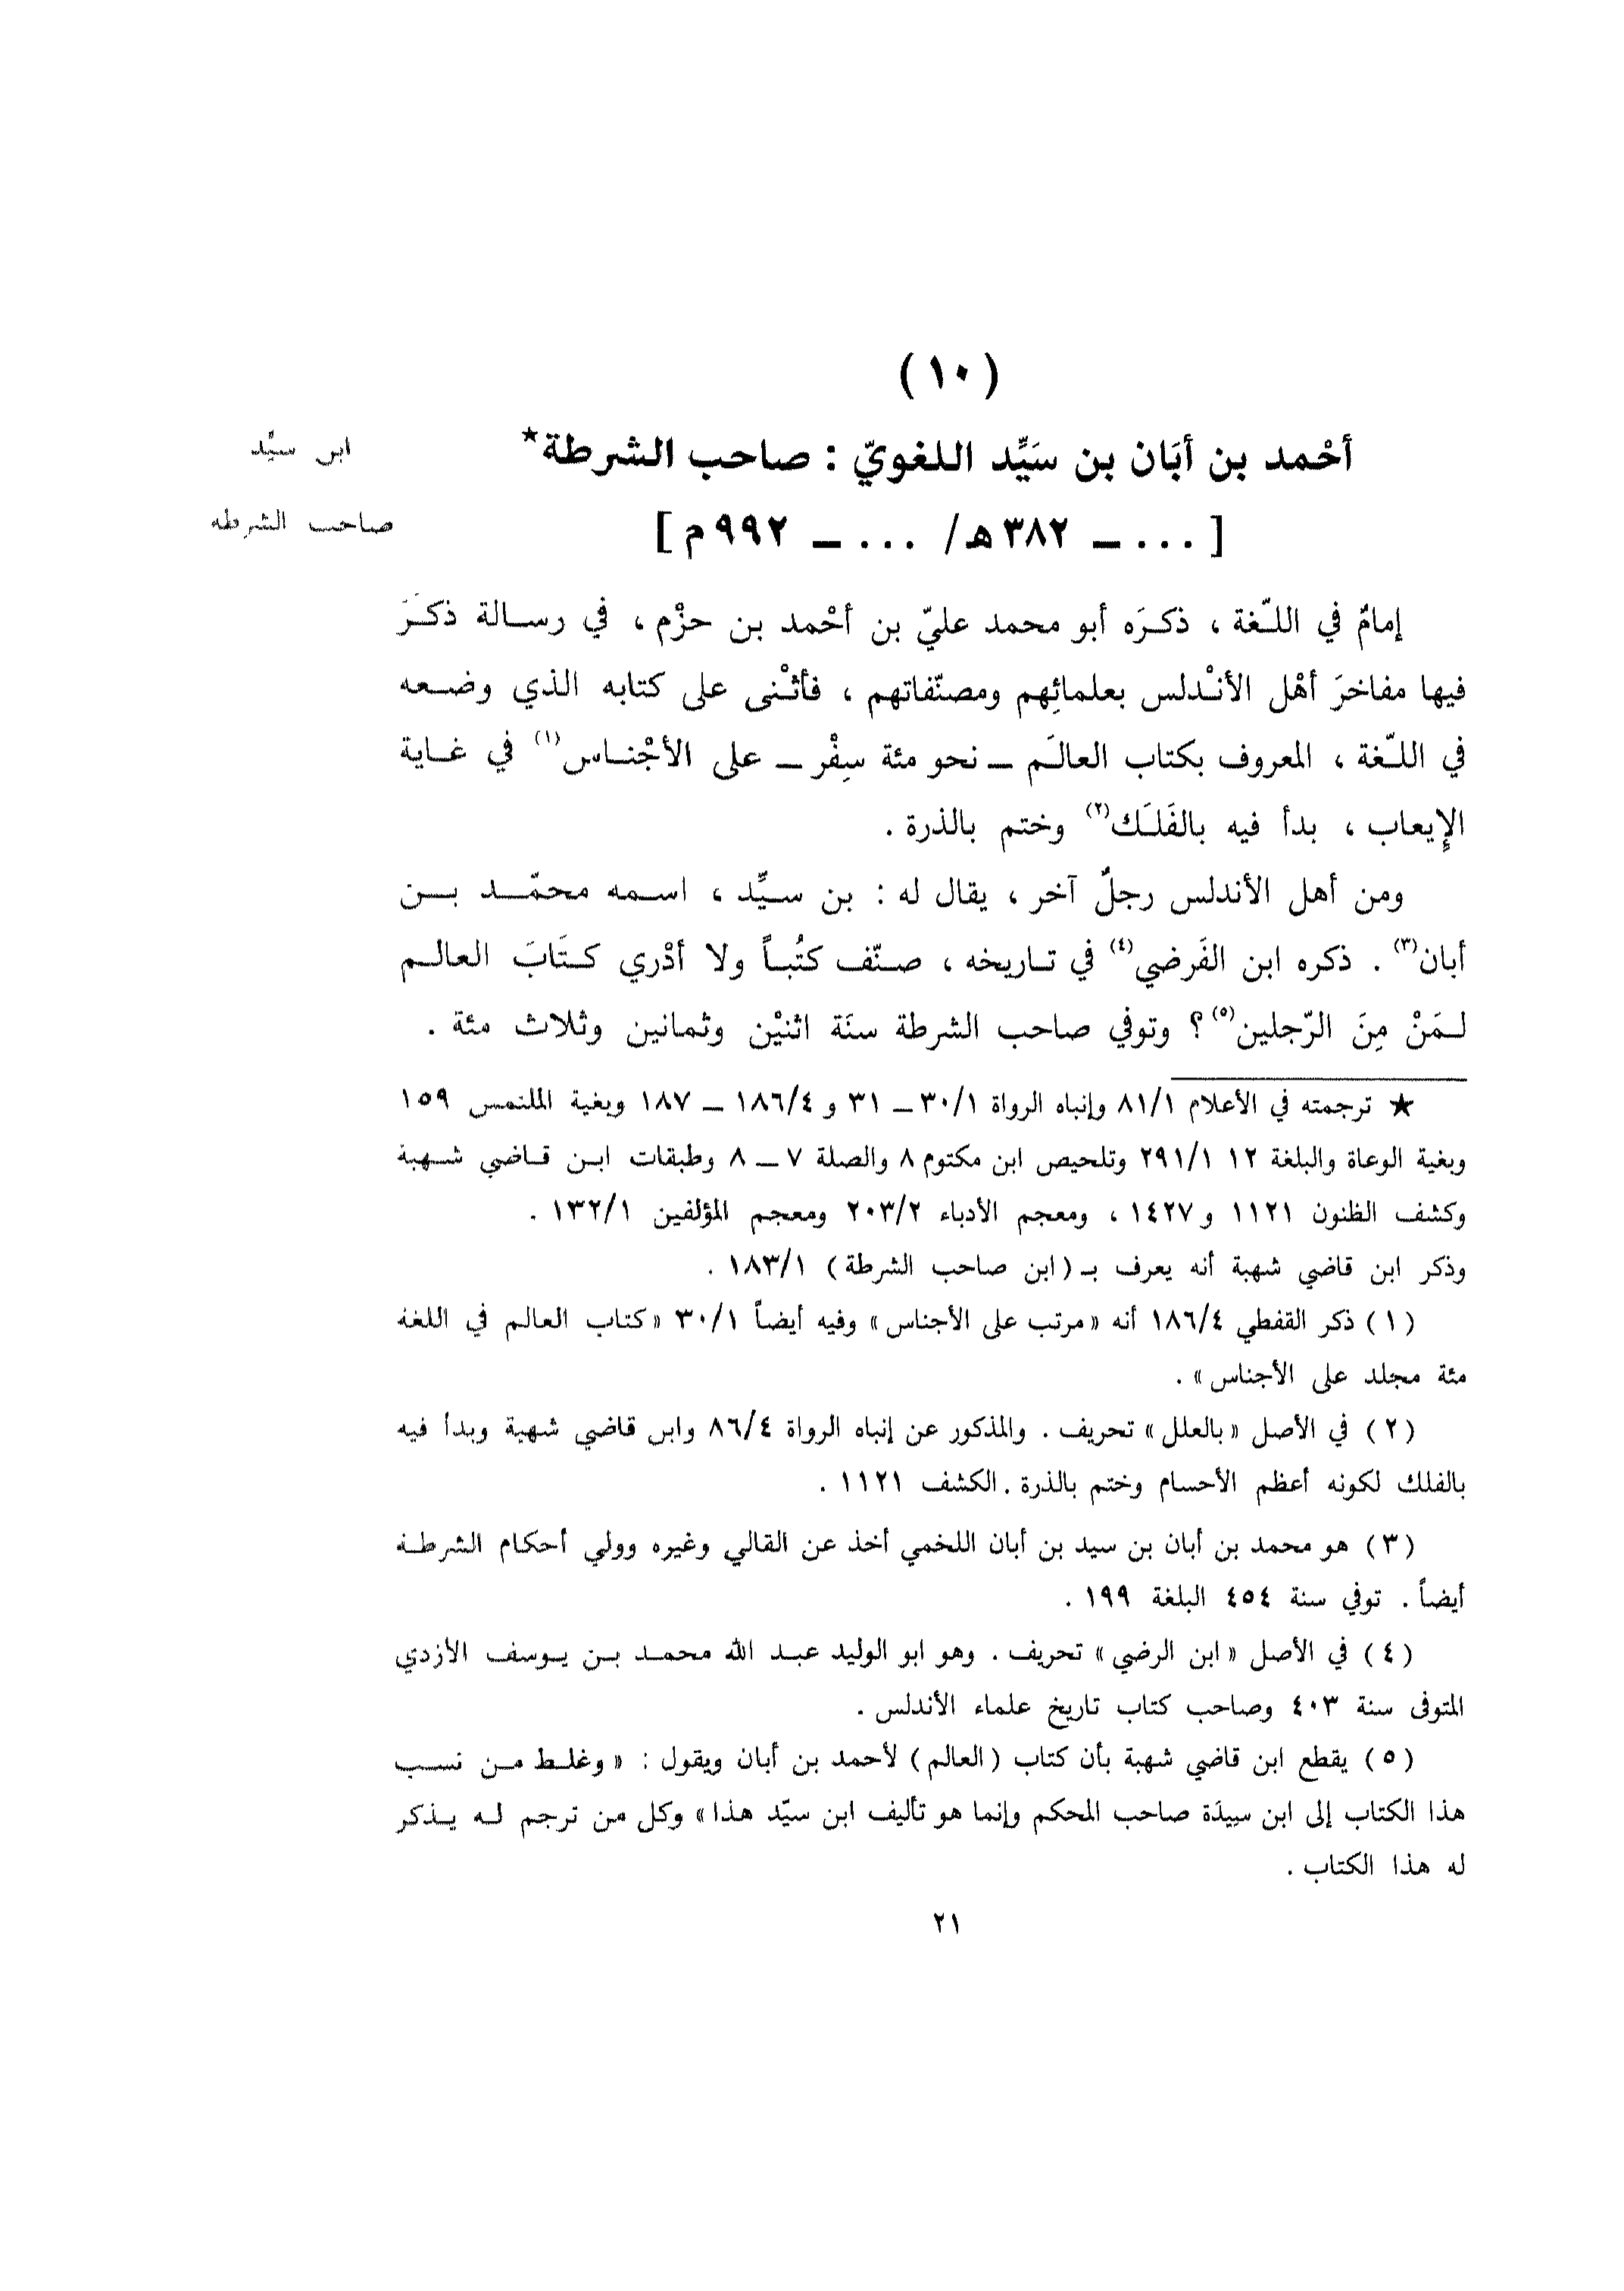 (١٠)
أحْمد بن أبَان بن سَيِّد اللغويّ : صاحب الشرطة*
ابن سيِّد
[ ... ــ ٣٨٢هـ/ ... ــ ٩٩٢م ]
صاحب الشرطة
إمامٌ في اللّغة ، ذكرَه أبو محمد عليّ بن أحْمد بن حزْم ، في رسالة ذكَرَ
فيها مفاخرَ أهْل الأنْدلس بعلمائِهم ومصنّفاتهم ، فأثْنى على كتابه الذي وضعه
في اللّغة ، المعروف بكتاب العالَم ــ نحو مئة سِفْر ــ على الأجْناس(١) في غاية
الإيعاب ، بدأ فيه بالفَلَك(٢) وختم بالذرة .
ومن أهل الأندلس رجلٌ آخر ، يقال له : بن سيِّد ، اسمه محمّد بن
أبان(٣) . ذكره ابن الفَرضي(٤) في تاريخه ، صنّف كتُباً ولا أدْري كتَابَ العالم
لمَنْ مِنَ الرّجلين(٥) ؟ وتوفي صاحب الشرطة سنَة اثنيْن وثمانين وثلاث مئة .
★ ترجمته في الأعلام ٨١/١ وإنباه الرواة ٣٠/١ ــ ٣١ و ١٨٦/٤ ــ ١٨٧ وبغية الملتمس ١٥٩
وبغية الوعاة والبلغة ١٢ ٢٩١/١ وتلخيص ابن مكتوم ٨ والصلة ٧ ــ ٨ وطبقات ابن قاضي شهبة
وكشف الظنون ١١٢١ و ١٤٢٧ ، ومعجم الأدباء ٢٠٣/٢ ومعجم المؤلفين ١٣٢/١ .
وذكر ابن قاضي شهبة أنه يعرف بـ (ابن صاحب الشرطة) ١٨٣/١ .
(١) ذكر القفطي ١٨٦/٤ أنه «مرتب على الأجناس» وفيه أيضاً ٣٠/١ «كتاب العالم في اللغة
مئة مجلد على الأجناس» .
(٢) في الأصل «بالعلل» تحريف . والمذكور عن إنباه الرواة ٨٦/٤ وابن قاضي شهبة وبدأ فيه
بالفلك لكونه أعظم الأجسام وختم بالذرة . الكشف ١١٢١ .
(٣) هو محمد بن أبان بن سيد بن أبان اللخمي أخذ عن القالي وغيره وولي أحكام الشرطة
أيضاً . توفي سنة ٤٥٤ البلغة ١٩٩ .
(٤) في الأصل «ابن الرضي» تحريف . وهو ابو الوليد عبد الله محمد بن يوسف الأزدي
المتوفى سنة ٤٠٣ وصاحب كتاب تاريخ علماء الأندلس .
(٥) يقطع ابن قاضي شهبة بأن كتاب (العالم) لأحمد بن أبان ويقول : «وغلط من نسب
هذا الكتاب إلى ابن سيدَة صاحب المحكم وإنما هو تأليف ابن سيّد هذا» وكل من ترجم له يذكر
له هذا الكتاب .
٢١